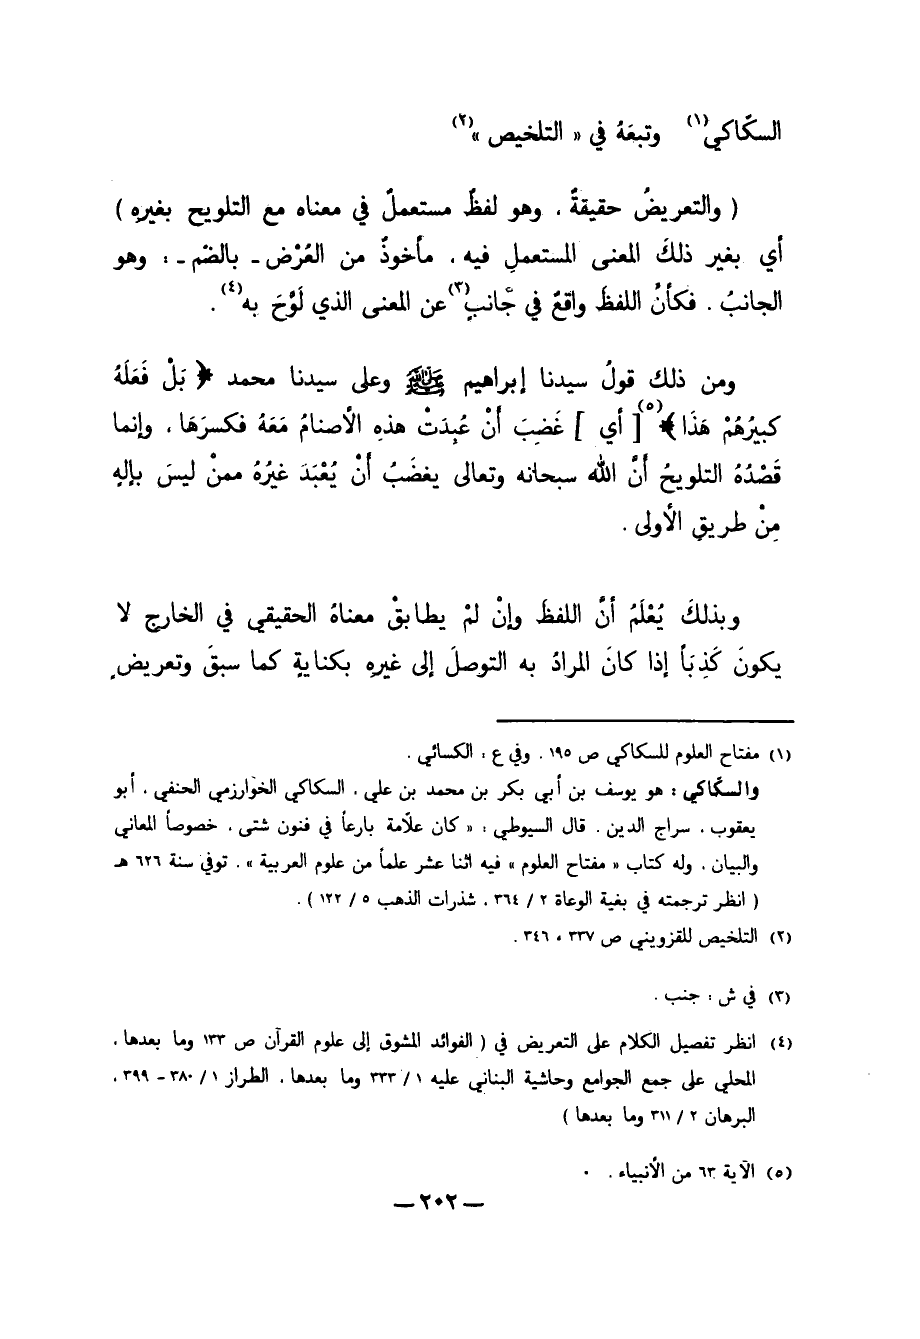 السكّاكي(١) وتبعَهُ في « التلخيص »(٢)
( والتعريضُ حقيقةٌ ، وهو لفظٌ مستعملٌ في معناه مع التلويح بغيرِه )
أي بغير ذلكَ المعنى المستعملِ فيه ، مأخوذٌ من العُرْض - بالضّم - : وهو
الجانبُ . فكأنَّ اللفظَ واقعٌ في جَانبٍ(٣) عن المعنى الذي لَوَّحَ به(٤) .
ومن ذلك قولُ سيدنا إبراهيم ﷺ وعلى سيدنا محمد ﴿ بَلْ فَعَلَهُ
كبيرُهُمْ هَذَا ﴾(٥) [ أي ] غَضِبَ أنْ عُبِدَتْ هذهِ الأصنامُ مَعَهُ فكسرَهَا ، وإنما
قَصْدُهُ التلويحُ أنَّ الله سبحانه وتعالى يغضَبُ أنْ يُعْبَدَ غيرُهُ ممنْ ليسَ بإلهٍ
مِنْ طريقِ الأولى .
وبذلكَ يُعْلَمُ أنَّ اللفظَ وإنْ لمْ يطابقْ معناهُ الحقيقي في الخارجِ لا
يكونَ كَذِبَاً إذا كانَ المرادُ به التوصلَ إلى غيرِهِ بكنايةٍ كما سبقَ وتعريضٍ
(١) مفتاح العلوم للسكاكي ص ١٩٥ . وفي ع : الكسائي .
والسكّاكي : هو يوسف بن أبي بكر بن محمد بن علي ، السكاكي الخوارزمي الحنفي ، أبو
يعقوب ، سراج الدين . قال السيوطي : « كان علّامة بارعاً في فنون شتى ، خصوصاً المعاني
والبيان ، وله كتاب « مفتاح العلوم » فيه اثنا عشر علماً من علوم العربية » . توفي سنة ٦٢٦ هـ
( انظر ترجمته في بغية الوعاة ٢ / ٣٦٤ ، شذرات الذهب ٥ / ١٢٢ ) .
(٢) التلخيص للقزويني ص ٣٣٧ ، ٣٤٦ .
(٣) في ش : جنب .
(٤) انظر تفصيل الكلام على التعريض في ( الفوائد المشوق إلى علوم القرآن ص ١٣٣ وما بعدها ،
المحلي على جمع الجوامع وحاشية البناني عليه ١ / ٣٣٣ وما بعدها ، الطراز ١ / ٣٨٠ - ٣٩٩ ،
البرهان ٢ / ٣١١ وما بعدها )
(٥) الآية ٦٣ من الأنبياء .
— ٢٠٢ —